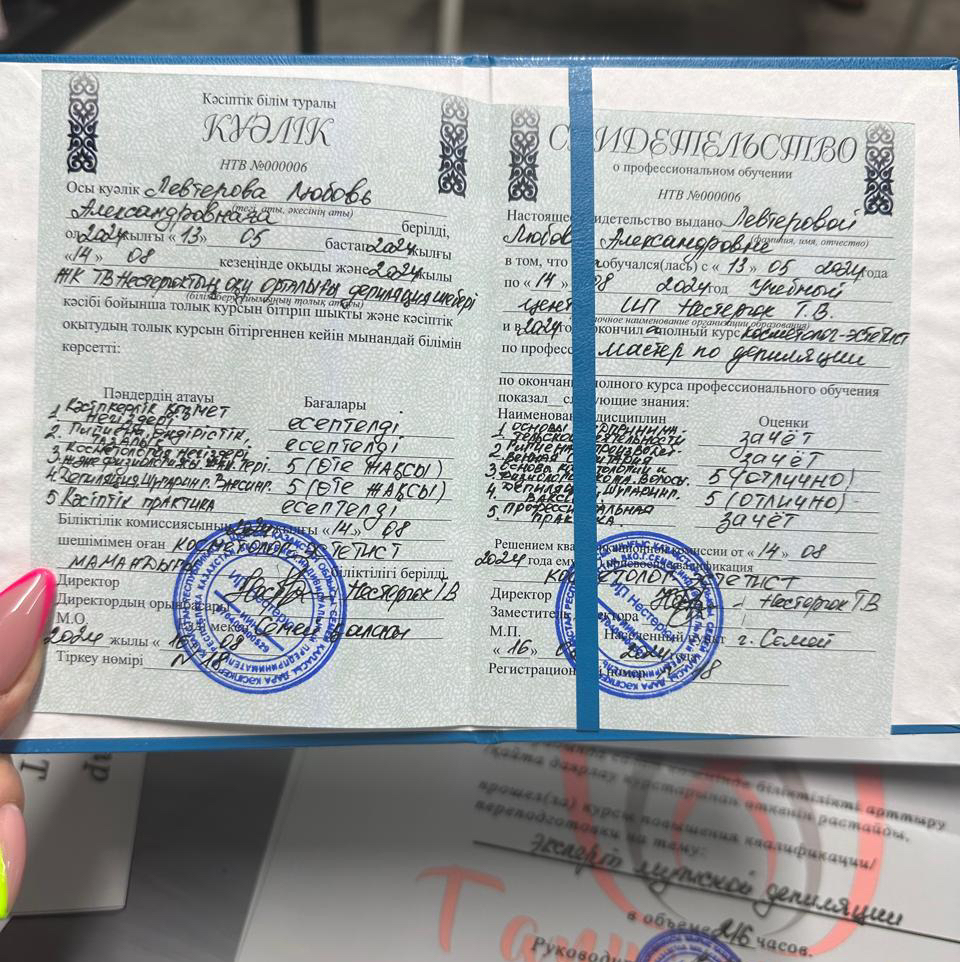 Кәсіптік білім туралы
КУӘЛІК
НТВ №000006
Осы куәлік Левтерова Любовь
(тегі, аты, әкесінің аты)
Александровнаға берілді,
ол 2024 жылғы « 13 » 05 бастап 2024 жылғы
« 14 » 08 кезеңінде оқыды және 2024 жылы
ЖК ТВ Нестерюктың оқу орталығы депиляция шебері
(білім беру ұйымының толық атауы)
кәсібі бойынша толық курсын бітіріп шықты және кәсіптік
оқытудың толық курсын бітіргеннен кейін мынандай білімін
көрсетті:
Пәндердің атауы Бағалары
1. Кәсіпкерлік қызмет негіздері есептелді
2. Гигиена, өндірістік тазалық есептелді
3. Косметология негіздері және физиологиясы тері. 5 (өте жақсы)
4. Депиляция, Шугаринг. Ваксинг. 5 (өте жақсы)
5. Кәсіптік практика есептелді
Біліктілік комиссиясының 2024 жылғы « 14 » 08
шешімімен оған косметолог-эстетист
мамандығы біліктілігі берілді.
Директор Нестерюк ТВ
Директордың орынбасары
М.О. Семей қаласы
2024 жылы « 16 » 08
Тіркеу нөмірі N 18
СВИДЕТЕЛЬСТВО
о профессиональном обучении
НТВ №000006
Настоящее свидетельство выдано Левтеровой
(фамилия, имя, отчество)
Любовь Александровне
в том, что обучался(лась) с « 13 » 05 2024 года
по « 14 » 08 2024 год Учебный
центр ИП Нестерюк Т.В.
(полное наименование организации образования)
и в 2024 окончил а полный курс косметолог-эстетист
по профессии мастер по депиляции
по окончании полного курса профессионального обучения
показал следующие знания:
Наименование дисциплин Оценки
1. Основы предпринимательской деятельности зачёт
2. Гигиена, производственная зачёт
3. Основы косметологии и 5 (отлично)
4. Депиляция, Шугаринг. Ваксинг. 5 (отлично)
5. Профессиональная практика. зачёт
Решением квалификационной комиссии от « 14 » 08
2024 года ему присвоена квалификация
косметолог-эстетист
Директор Нестерюк ТВ
Заместитель директора
М.П. Населенный пункт г. Семей
« 16 » 08 2024 года
Регистрационный номер 18
біліктілікті арттыру
қайта даярлау курстарынан өткенін растайды.
прошел(ла) курсы повышения квалификации/
переподготовки на тему:
Эксперт мужской депиляции
в объеме 216 часов.
Руководи